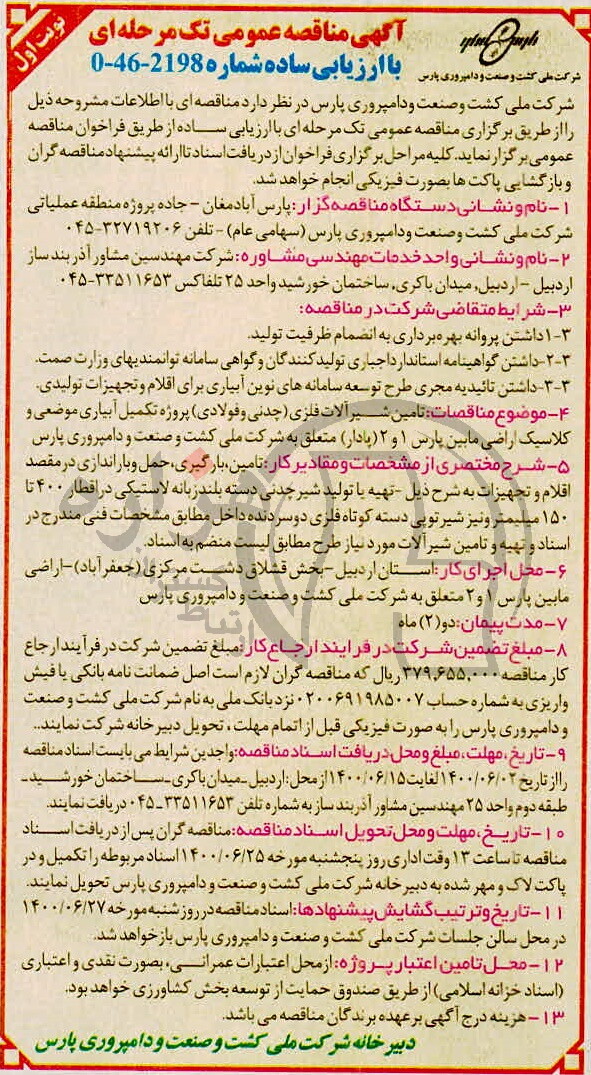 نوبت اول
آگهی مناقصه عمومی تک مرحله ای
با ارزیابی ساده شماره 2198-46-0
شرکت ملی کشت و صنعت و دامپروری پارس
شرکت ملی کشت وصنعت ودامپروری پارس در نظر دارد مناقصه ای با اطلاعات مشروحه ذیل
را از طریق برگزاری مناقصه عمومی تک مرحله ای با ارزیابی ساده از طریق فراخوان مناقصه
عمومی برگزار نماید. کلیه مراحل برگزاری فراخوان از دریافت اسناد تا ارائه پیشنهاد مناقصه گران
و بازگشایی پاکت ها بصورت فیزیکی انجام خواهد شد.
۱- نام و نشانی دستگاه مناقصه گزار: پارس آبادمغان - جاده پروژه منطقه عملیاتی
شرکت ملی کشت وصنعت ودامپروری پارس (سهامی عام) - تلفن ۳۲۷۱۹۲۰۶-۰۴۵
۲- نام و نشانی واحد خدمات مهندسی مشاوره: شرکت مهندسین مشاور آذر بند ساز
اردبیل - اردبیل، میدان باکری، ساختمان خورشید واحد ۲۵ تلفاکس ۳۳۵۱۱۶۵۳-۰۴۵
۳- شرایط متقاضی شرکت در مناقصه:
۳-۱ داشتن پروانه بهره برداری به انضمام ظرفیت تولید.
۳-۲- داشتن گواهینامه استاندارد اجباری تولیدکنندگان وگواهی سامانه توانمندیهای وزارت صمت.
۳-۳- داشتن تائیدیه مجری طرح توسعه سامانه های نوین آبیاری برای اقلام وتجهیزات تولیدی.
۴- موضوع مناقصات: تامین شیرآلات فلزی (چدنی وفولادی) پروژه تکمیل آبیاری موضعی و
کلاسیک اراضی مابین پارس ۱ و ۲ (پادار) متعلق به شرکت ملی کشت و صنعت و دامپروری پارس
۵- شرح مختصری از مشخصات و مقادیر کار: تامین، بارگیری، حمل وباراندازی در مقصد
اقلام و تجهیزات به شرح ذیل - تهیه یا تولید شیر چدنی دسته بلند زبانه لاستیکی در اقطار ۴۰۰ تا
۱۵۰ میلیمتر ونیز شیر توپی دسته کوتاه فلزی دوسر دنده داخل مطابق مشخصات فنی مندرج در
اسناد و تهیه و تامین شیرآلات مورد نیاز طرح مطابق لیست منضم به اسناد.
۶- محل اجرای کار: استان اردبیل - بخش قشلاق دشت مرکزی (جعفرآباد) - اراضی
مابین پارس ۱ و ۲ متعلق به شرکت ملی کشت و صنعت و دامپروری پارس
۷- مدت پیمان: دو (۲) ماه
۸- مبلغ تضمین شرکت در فرایند ارجاع کار: مبلغ تضمین شرکت در فرآیند ارجاع
کار مناقصه ۳۷۹,۶۵۵,۰۰۰ ریال که مناقصه گران لازم است اصل ضمانت نامه بانکی یا فیش
واریزی به شماره حساب ۰۲۰۰۶۹۱۹۸۵۰۰۷ نزد بانک ملی به نام شرکت ملی کشت و صنعت
و دامپروری پارس را به صورت فیزیکی قبل از اتمام مهلت، تحویل دبیرخانه شرکت نمایند..
۹- تاریخ، مهلت، مبلغ و محل دریافت اسناد مناقصه: واجدین شرایط می بایست اسناد مناقصه
را از تاریخ ۱۴۰۰/۰۶/۰۲ لغایت ۱۴۰۰/۰۶/۱۵ از محل: اردبیل - میدان باکری - ساختمان خورشید -
طبقه دوم واحد ۲۵ مهندسین مشاور آذر بند ساز به شماره تلفن ۳۳۵۱۱۶۵۳-۰۴۵ دریافت نمایند.
۱۰- تاریخ، مهلت و محل تحویل اسناد مناقصه: مناقصه گران پس از دریافت اسناد
مناقصه تا ساعت ۱۳ وقت اداری روز پنجشنبه مورخه ۱۴۰۰/۰۶/۲۵ اسناد مربوطه را تکمیل و در
پاکت لاک و مهر شده به دبیرخانه شرکت ملی کشت و صنعت و دامپروری پارس تحویل نمایند.
۱۱- تاریخ و ترتیب گشایش پیشنهادها: اسناد مناقصه در روز شنبه مورخه ۱۴۰۰/۰۶/۲۷
در محل سالن جلسات شرکت ملی کشت و صنعت و دامپروری پارس بازخواهد شد.
۱۲- محل تامین اعتبار پروژه: از محل اعتبارات عمرانی، بصورت نقدی و اعتباری
(اسناد خزانه اسلامی) از طریق صندوق حمایت از توسعه بخش کشاورزی خواهد بود.
۱۳- هزینه درج آگهی برعهده برندگان مناقصه می باشد.
دبیرخانه شرکت ملی کشت و صنعت و دامپروری پارس